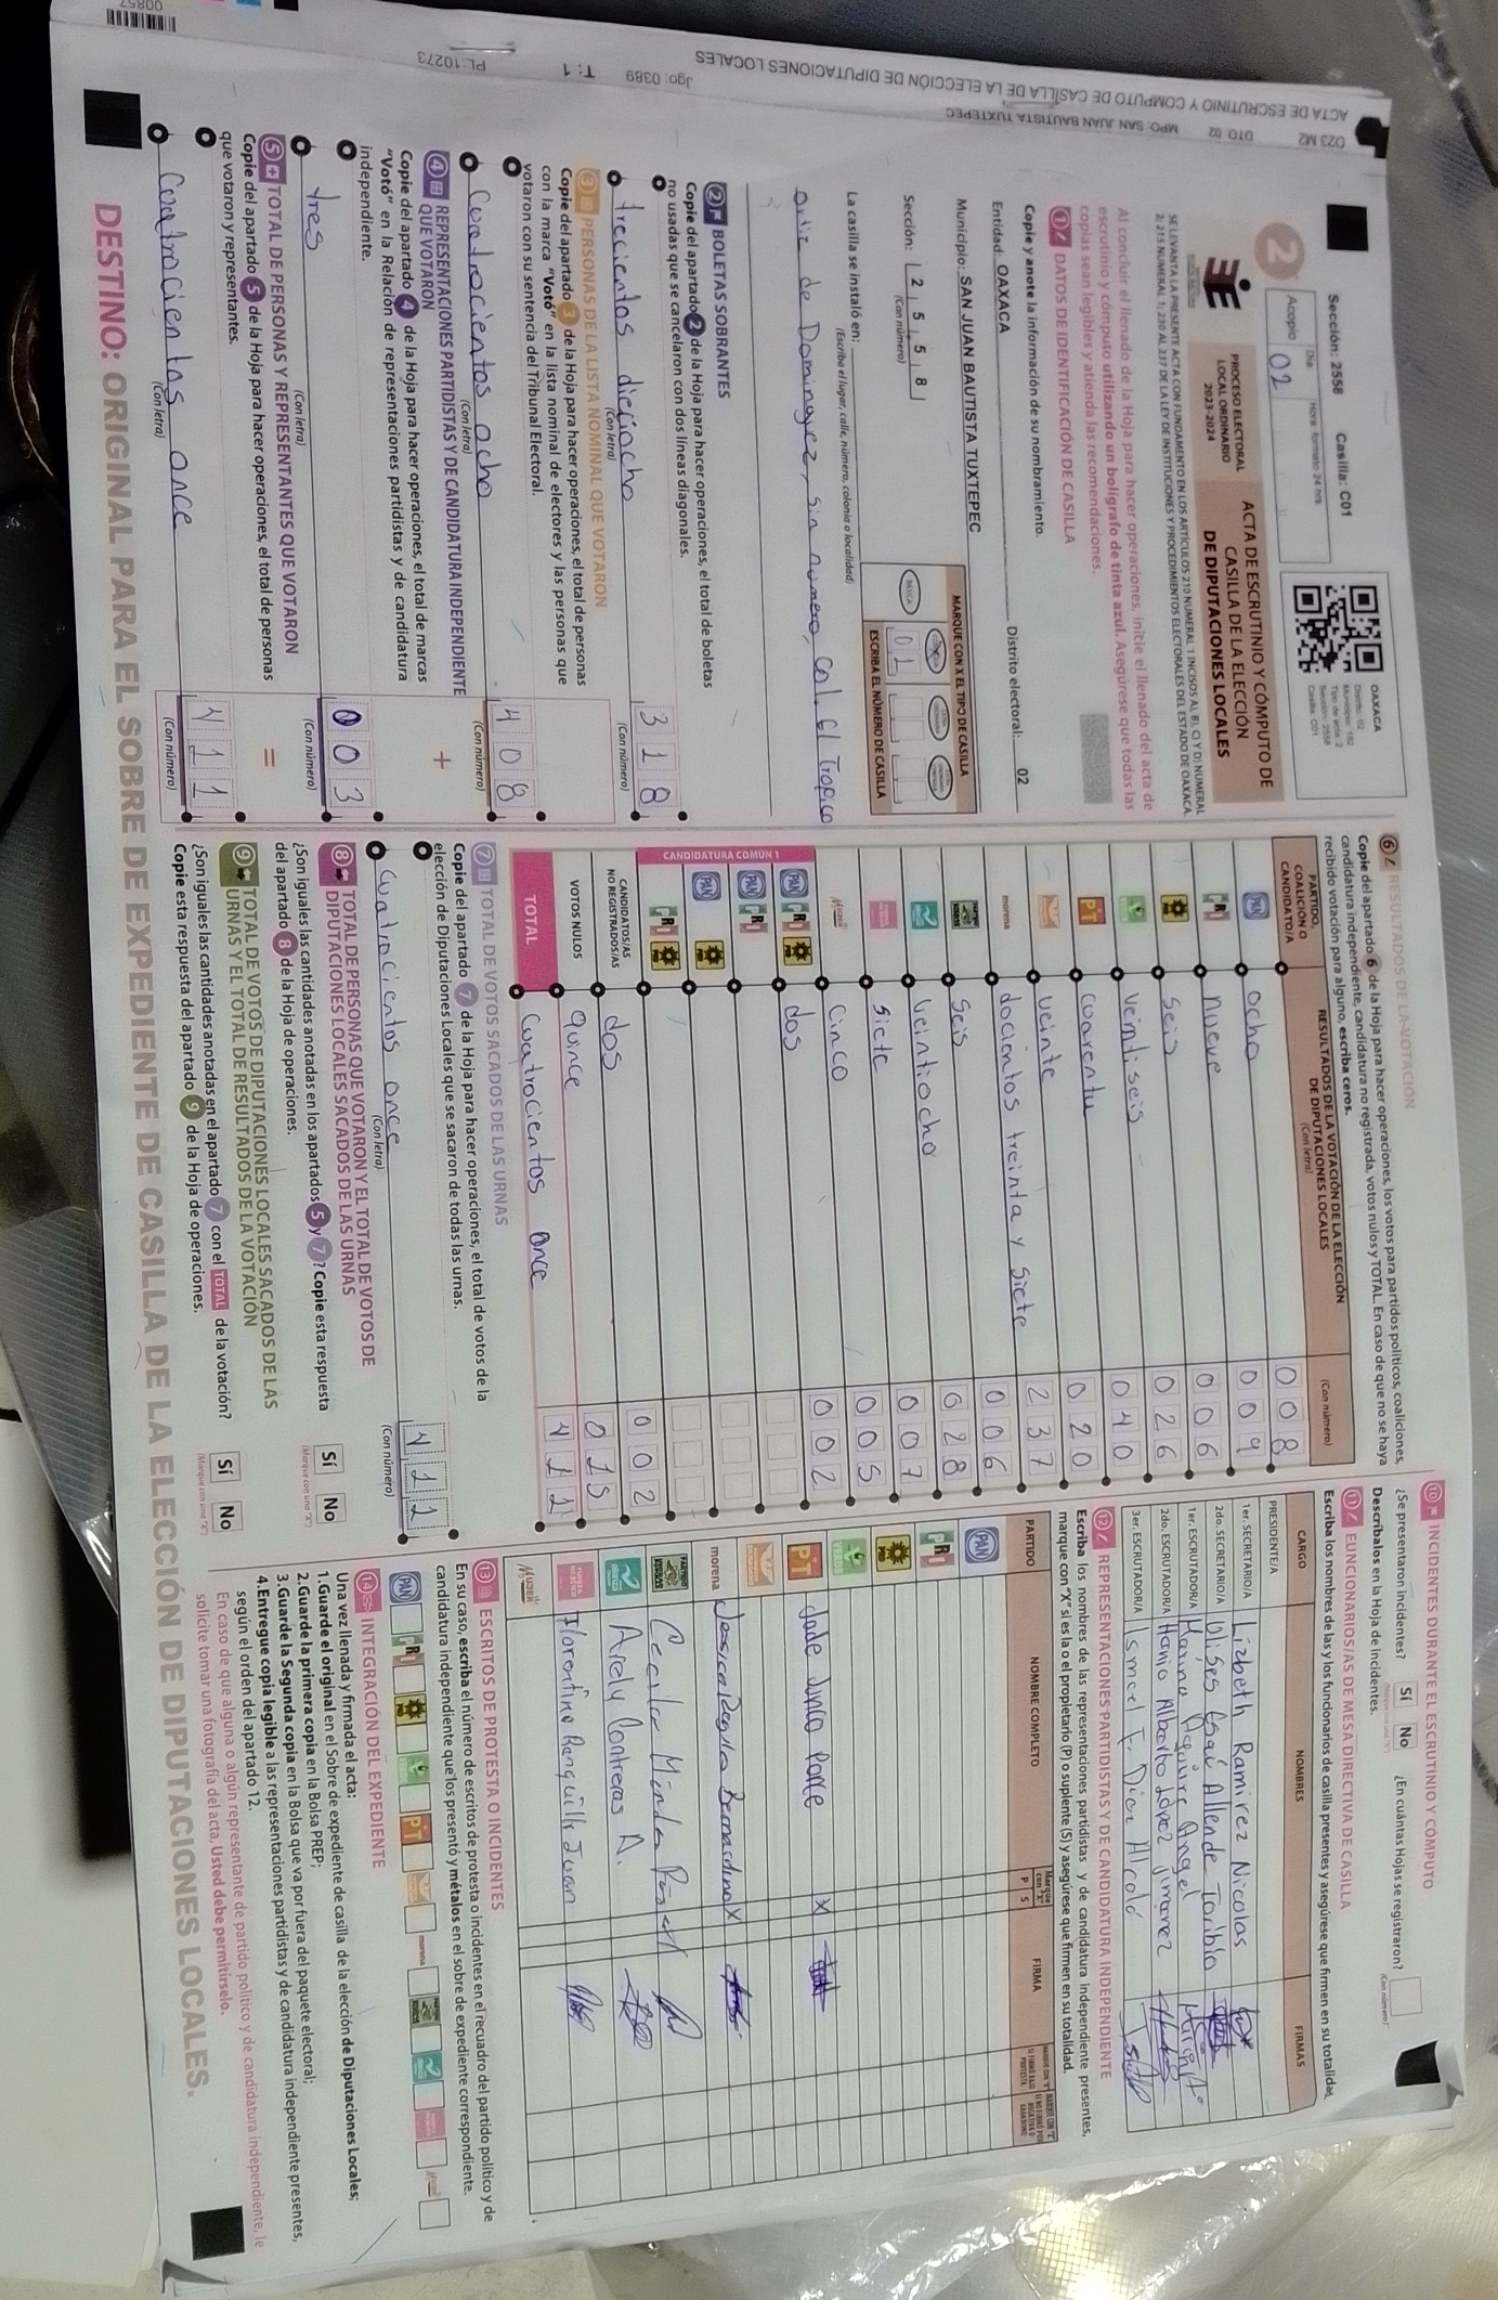 Sección: 2558 Casilla: C01
Acopio Día Hora: formato 24 hrs
02
OAXACA
Distrito: 02
Municipio: 182
Tipo de acta: 2
Sección: 2558
Casilla: C01
2
PROCESO ELECTORAL
LOCAL ORDINARIO
2023-2024
ACTA DE ESCRUTINIO Y CÓMPUTO DE
CASILLA DE LA ELECCIÓN
DE DIPUTACIONES LOCALES
SE LEVANTA LA PRESENTE ACTA, CON FUNDAMENTO EN LOS ARTÍCULOS 210 NUMERAL 1 INCISOS A), B), C) Y D); NUMERAL
2; 215 NUMERAL 1; 230 AL 237 DE LA LEY DE INSTITUCIONES Y PROCEDIMIENTOS ELECTORALES DEL ESTADO DE OAXACA.
Al concluir el llenado de la Hoja para hacer operaciones, inicie el llenado del acta de
escrutinio y cómputo utilizando un bolígrafo de tinta azul. Asegúrese que todas las
copias sean legibles y atienda las recomendaciones.
1 DATOS DE IDENTIFICACIÓN DE CASILLA
Copie y anote la información de su nombramiento.
Entidad: OAXACA Distrito electoral: 02
Municipio: SAN JUAN BAUTISTA TUXTEPEC
Sección: 2 5 5 8
(Con número)
MARQUE CON X EL TIPO DE CASILLA
BÁSICA
01
ESCRIBA EL NÚMERO DE CASILLA
La casilla se instaló en:
(Escriba el lugar, calle, número, colonia o localidad)
ortiz de Dominguez, sin numero, Col. El Tropico
2 BOLETAS SOBRANTES
Copie del apartado 2 de la Hoja para hacer operaciones, el total de boletas
no usadas que se cancelaron con dos líneas diagonales.
trecientos dieciocho 318
(Con letra) (Con número)
3 PERSONAS DE LA LISTA NOMINAL QUE VOTARON
Copie del apartado 3 de la Hoja para hacer operaciones, el total de personas
con la marca "Votó" en la lista nominal de electores y las personas que
votaron con su sentencia del Tribunal Electoral.
Cuatrocientos ocho 408
(Con letra) (Con número)
4 REPRESENTACIONES PARTIDISTAS Y DE CANDIDATURA INDEPENDIENTE
QUE VOTARON
+
Copie del apartado 4 de la Hoja para hacer operaciones, el total de marcas
"Votó" en la Relación de representaciones partidistas y de candidatura
independiente.
tres 003
(Con letra) (Con número)
5 TOTAL DE PERSONAS Y REPRESENTANTES QUE VOTARON
=
Copie del apartado 5 de la Hoja para hacer operaciones, el total de personas
que votaron y representantes.
Cuatrocientos once 411
(Con letra) (Con número)
6 RESULTADOS DE LA VOTACIÓN
Copie del apartado 6 de la Hoja para hacer operaciones, los votos para partidos políticos, coaliciones,
candidatura independiente, candidatura no registrada, votos nulos y TOTAL. En caso de que no se haya
recibido votación para alguno, escriba ceros.
PARTIDO, COALICIÓN O CANDIDATO/A
RESULTADOS DE LA VOTACIÓN DE LA ELECCIÓN
DE DIPUTACIONES LOCALES
(Con letra) (Con número)
PAN ocho 008
PRI nueve 009
PRD seis 006
veintiseis 026
PT cuarenta 040
veinte 020
morena docientos treinta y siete 237
seis 006
veintiocho 028
siete 007
Mujer cinco 005
CANDIDATURA COMÚN 1
PAN PRI PRD dos 002
PAN PRI
PAN PRD
PRI PRD
CANDIDATOS/AS
NO REGISTRADOS/AS dos 002
VOTOS NULOS quince 015
TOTAL Cuatrocientos once 411
7 TOTAL DE VOTOS SACADOS DE LAS URNAS
Copie del apartado 7 de la Hoja para hacer operaciones, el total de votos de la
elección de Diputaciones Locales que se sacaron de todas las urnas.
Cuatrocientos once 411
(Con letra) (Con número)
8 TOTAL DE PERSONAS QUE VOTARON Y EL TOTAL DE VOTOS DE
DIPUTACIONES LOCALES SACADOS DE LAS URNAS
¿Son iguales las cantidades anotadas en los apartados 5 y 7? Copie esta respuesta
del apartado 8 de la Hoja de operaciones.
Sí No
(Marque con una "X")
9 TOTAL DE VOTOS DE DIPUTACIONES LOCALES SACADOS DE LAS
URNAS Y EL TOTAL DE RESULTADOS DE LA VOTACIÓN
¿Son iguales las cantidades anotadas en el apartado 7 con el TOTAL de la votación?
Copie esta respuesta del apartado 9 de la Hoja de operaciones.
Sí No
(Marque con una "X")
10 INCIDENTES DURANTE EL ESCRUTINIO Y CÓMPUTO
¿Se presentaron incidentes? Sí No ¿En cuántas Hojas se registraron?
(Con número)
Descríbalos en la Hoja de Incidentes.
11 FUNCIONARIOS/AS DE MESA DIRECTIVA DE CASILLA
Escriba los nombres de las y los funcionarios de casilla presentes y asegúrese que firmen en su totalidad.
CARGO NOMBRES FIRMAS
PRESIDENTE/A Lizbeth Ramirez Nicolas
1er. SECRETARIO/A Ulises Esaú Allende Toribio
2do. SECRETARIO/A
1er. ESCRUTADOR/A
2do. ESCRUTADOR/A
3er. ESCRUTADOR/A
12 REPRESENTACIONES PARTIDISTAS Y DE CANDIDATURA INDEPENDIENTE
Escriba los nombres de las representaciones partidistas y de candidatura independiente presentes,
marque con "X" si es la o el propietario (P) o suplente (S) y asegúrese que firmen en su totalidad.
PARTIDO NOMBRE COMPLETO Marque con "X" P S FIRMA
PAN
PRI
PRD
VERDE
PT X
morena X
Arely Contreas A.
Florentino Ranguilli Juan
Mujer
13 ESCRITOS DE PROTESTA O INCIDENTES
En su caso, escriba el número de escritos de protesta o incidentes en el recuadro del partido político y de
candidatura independiente que los presentó y métalos en el sobre de expediente correspondiente.
PAN PRI PRD PT morena
14 INTEGRACIÓN DEL EXPEDIENTE
Una vez llenada y firmada el acta:
1.Guarde el original en el Sobre de expediente de casilla de la elección de Diputaciones Locales;
2.Guarde la primera copia en la Bolsa PREP;
3.Guarde la Segunda copia en la Bolsa que va por fuera del paquete electoral;
4.Entregue copia legible a las representaciones partidistas y de candidatura independiente presentes,
según el orden del apartado 12.
En caso de que alguna o algún representante de partido político y de candidatura independiente, le
solicite tomar una fotografía del acta, Usted debe permitírselo.
DESTINO: ORIGINAL PARA EL SOBRE DE EXPEDIENTE DE CASILLA DE LA ELECCIÓN DE DIPUTACIONES LOCALES.
ACTA DE ESCRUTINIO Y COMPUTO DE CASILLA DE LA ELECCIÓN DE DIPUTACIONES LOCALES
D23 M2 DTO. 02 MPO. SAN JUAN BAUTISTA TUXTEPEC
Jgo: 0389 T: 1 PL.10273
00857